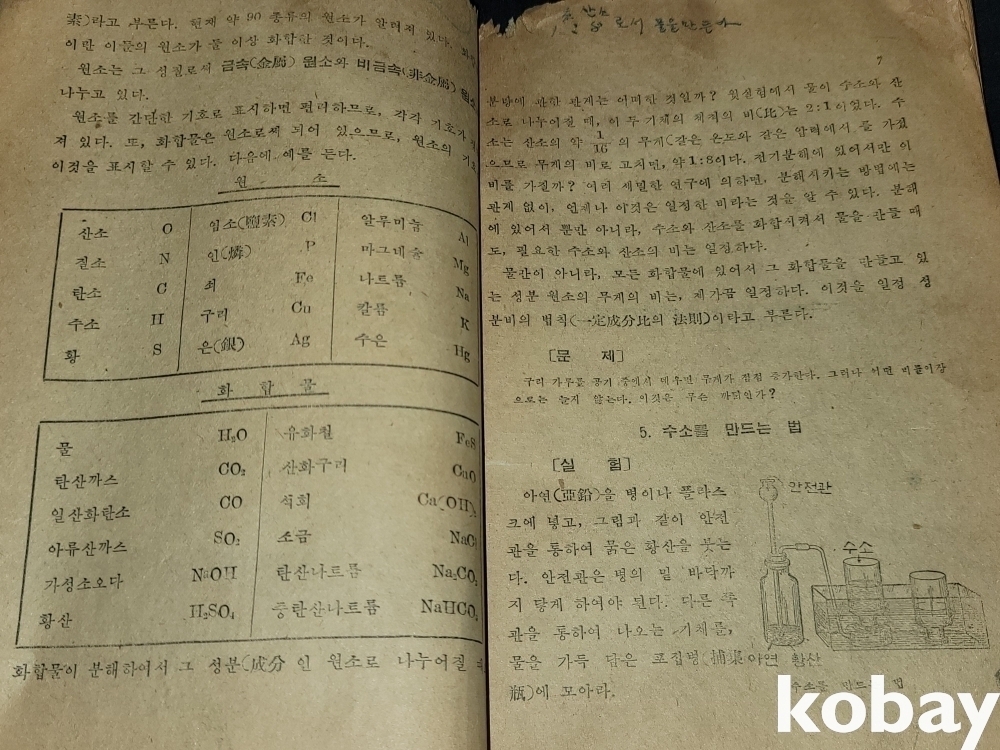 素)라고 부른다. 현재 약 90 종류의 원소가 알려져 있다. 화합
이란 이들의 원소가 둘 이상 화합한 것이다.
원소는 그 성질로써 금속(金屬) 원소와 비금속(非金屬) 원소
나누고 있다.
원소를 간단한 기호로 표시하면 편리하므로, 각각 기호가
져 있다. 또, 화합물은 원소로써 되어 있으므로, 원소의 기호
이것을 표시할 수 있다. 다음에 예를 든다.
원 소
산소 O 염소(鹽素) Cl 알루미늄 Al
질소 N 인(燐) P 마그네슘 Mg
탄소 C 쇠 Fe 나트륨 Na
수소 H 구리 Cu 칼륨 K
황 S 은(銀) Ag 수은 Hg
화 합 물
물 H₂O 유화철 FeS
탄산까스 CO₂ 산화구리 CuO
일산화탄소 CO 석회 Ca(OH)₂
아류산까스 SO₂ 소금 NaCl
가성소오다 NaOH 탄산나트륨 Na₂CO₃
황산 H₂SO₄ 중탄산나트륨 NaHCO₃
화합물이 분해하여서 그 성분(成分 인 원소로 나누어질 때
산소
로서 물을만든다
7
분량에 관한 관계는 어떠한 것일까? 윗실험에서 물이 수소와 산
소로 나누어질 때, 이 두 기체의 체적의 비(比)는 2:1이었다. 수
소는 산소의 약 1/16 의 무게(같은 온도와 같은 압력에서 를 가졌
으므로 무게의 비로 고치면, 약 1:8이다. 전기분해에 있어서만 이
비를 가질까? 여러 세밀한 연구에 의하면, 분해시키는 방법에는
관계 없이, 언제나 이것은 일정한 비라는 것을 알 수 있다. 분해
에 있어서 뿐만 아니라, 수소와 산소를 화합시켜서 물을 만들 때
도, 필요한 수소와 산소의 비는 일정하다.
물만이 아니라, 모든 화합물에 있어서 그 화합물을 만들고 있
는 성분 원소의 무게의 비는, 제가끔 일정하다. 이것을 일정 성
분비의 법칙(一定成分比의 法則)이라고 부른다.
[문 제]
구리 가루를 공기 중에서 태우면 무게가 점점 증가한다. 그러나 어떤
으로는 늘지 않는다. 이것은 무슨 까닭인가?
5. 수소를 만드는 법
[실 험]
아연(亞鉛)을 병이나 플라스
크에 넣고, 그림과 같이 안전
관을 통하여 묽은 황산을 붓는
다. 안전관은 병의 밑 바닥까
지 닿게 하여야 된다. 다른 쪽
관을 통하여 나오는 기체를,
물을 가득 담은 포집병(捕集
甁)에 모아라.
안전관
수소
아연 황산
수소를 만드는 법
kobay